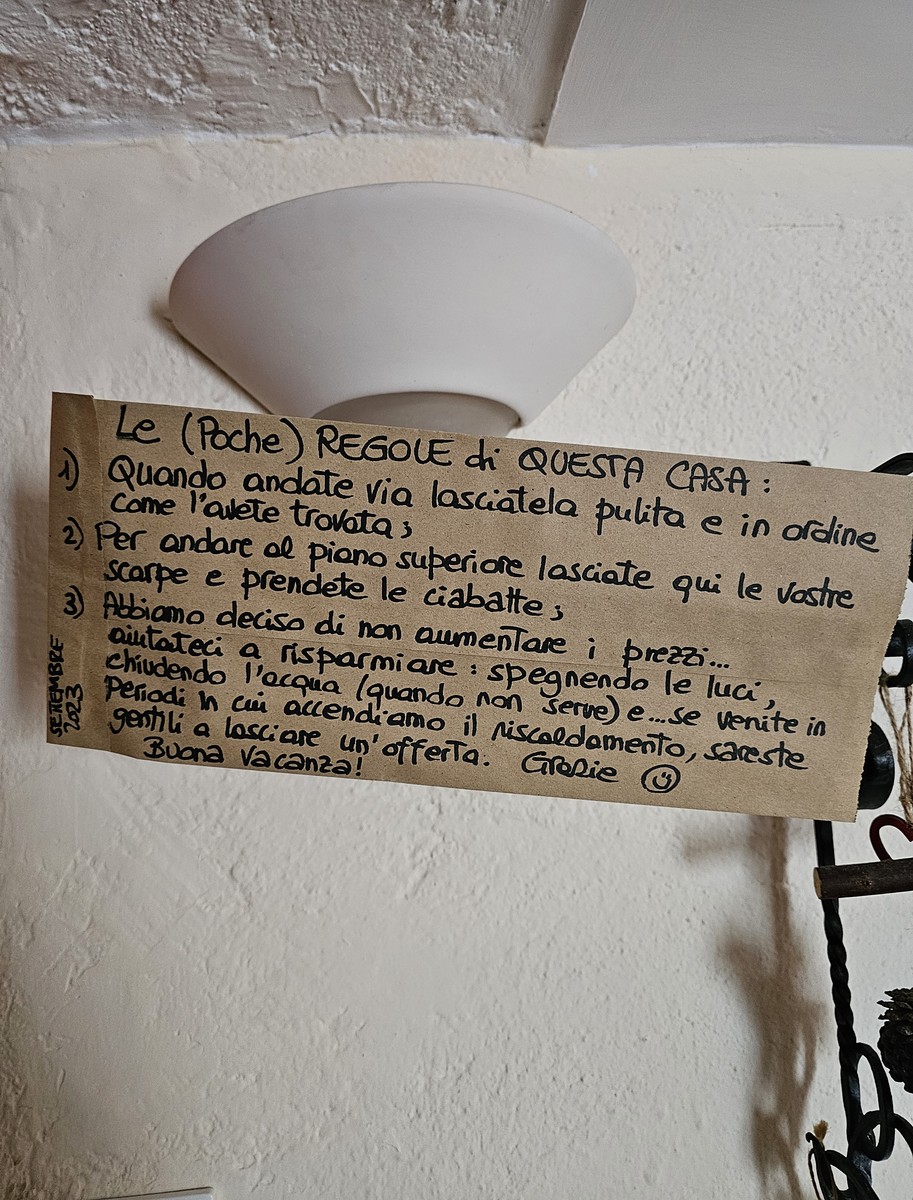 Le (Poche) REGOLE di QUESTA CASA:
1) Quando andate via lasciatela pulita e in ordine
come l'avete trovata;
2) Per andare al piano superiore lasciate qui le vostre
scarpe e prendete le ciabatte;
3) Abbiamo deciso di non aumentare i prezzi...
aiutateci a risparmiare: spegnendo le luci,
chiudendo l'acqua (quando non serve) e...se venite in
periodi in cui accendiamo il riscaldamento, sareste
gentili a lasciare un'offerta. Grazie ☺
Buona vacanza!
SETTEMBRE
2023